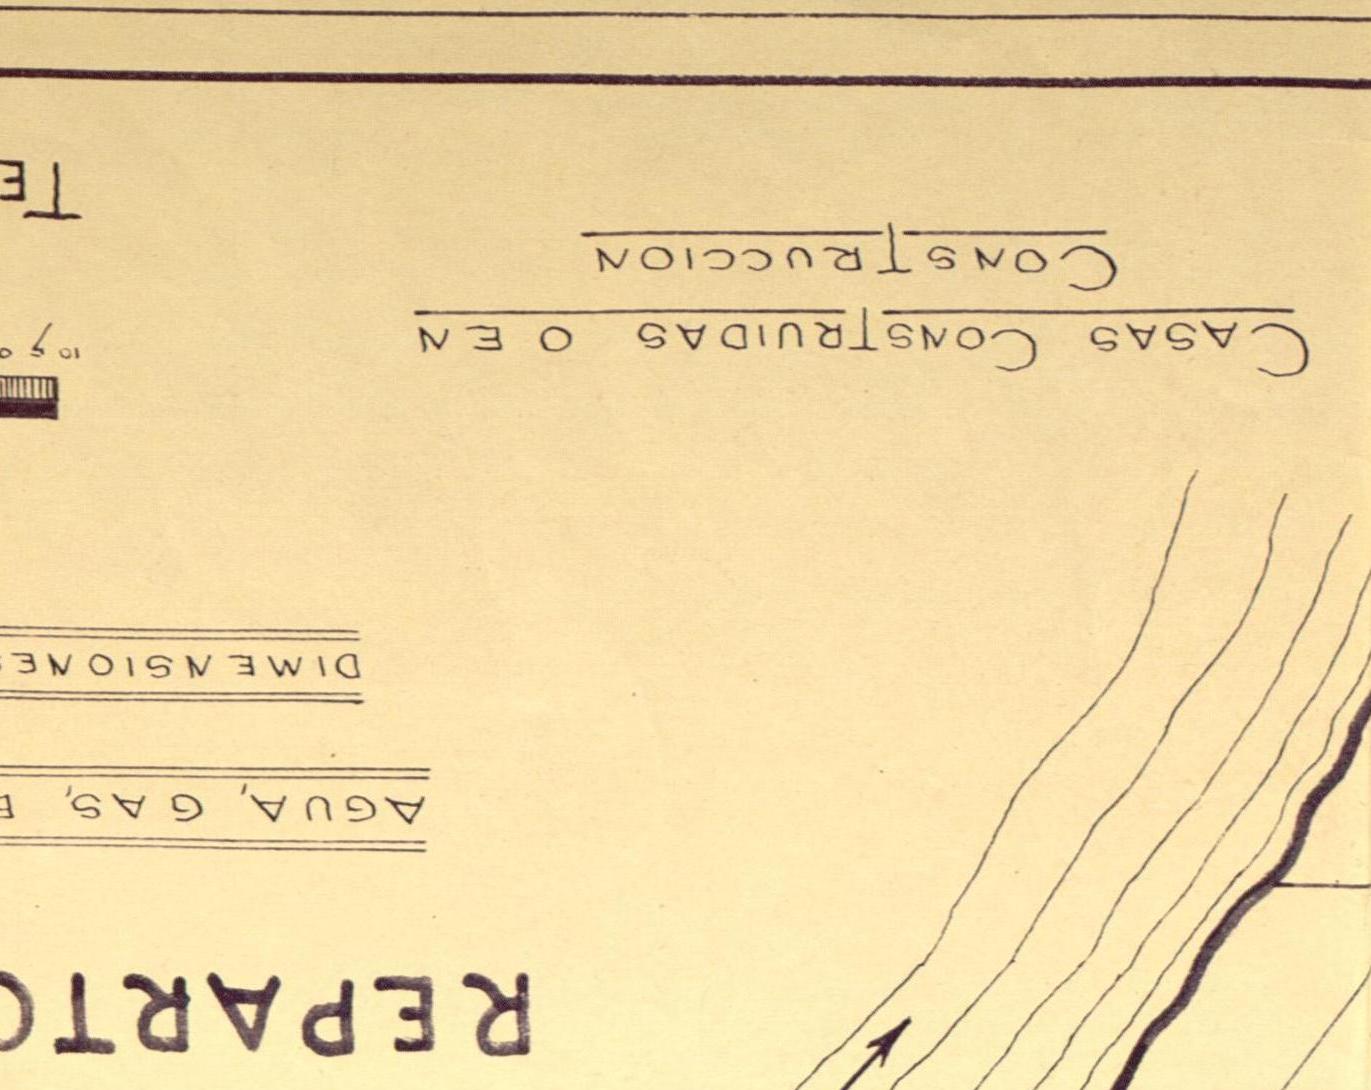 REPARTO
AGUA, GAS, E
DIMENSIONES
CASAS CONSTRUIDAS O EN
CONSTRUCCION
10 5 0
TE